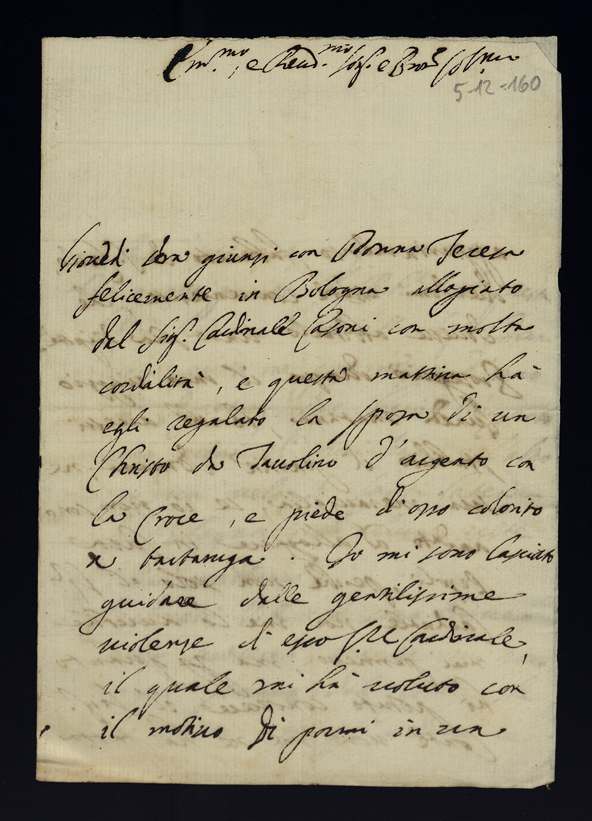 Em.mo, e Reud.mo Sig.r e Pron
5-12-160
Giovedi sera giunsi con Donna Teresa
felicemente in Bologna allogiato
dal Sig.r Cardinale Casoni con molta
cordialità, e questa mattina hà
egli regalato la sposa di un
Christo da Tavolino d'argento con
la Croce, e piede d'osso colorito
a tartaruga. Io mi sono lasciato
guidare dalle gentilissime
violenze di esso Sig.r Cardinale,
il quale mi hà voluto con
il motivo di pormi in un